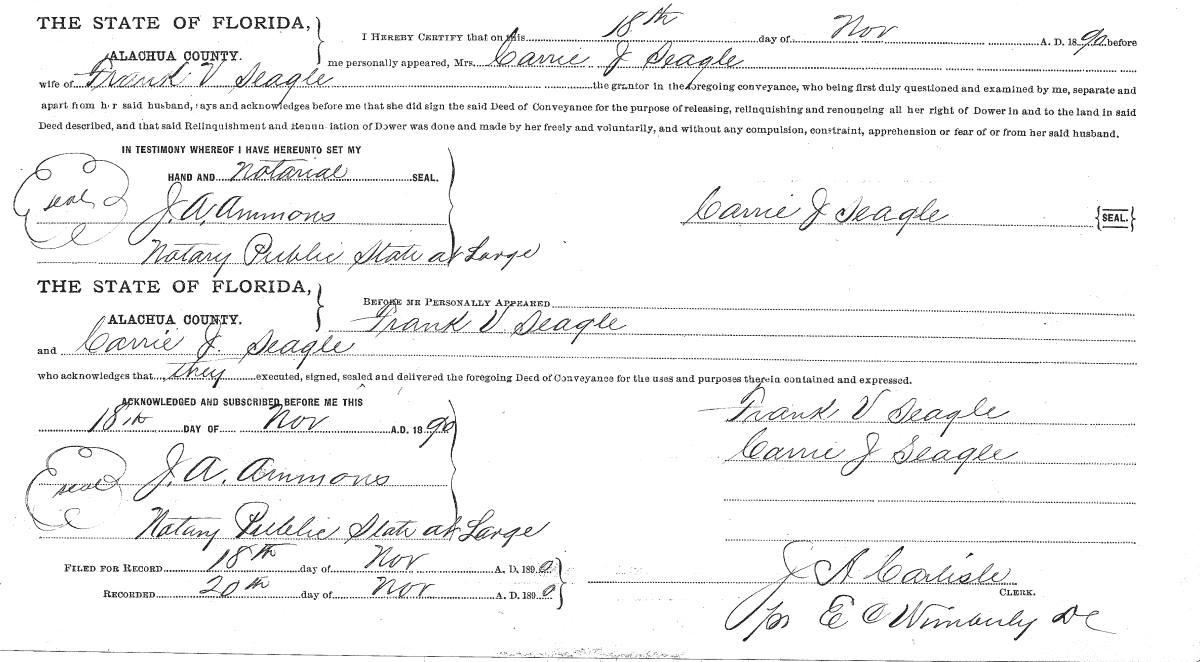 THE STATE OF FLORIDA,
ALACHUA COUNTY.
I HEREBY CERTIFY that on this 18th day of Nov A. D. 1890 before
me personally appeared, Mrs. Carrie J Seagle
wife of Frank V Seagle the grantor in the foregoing conveyance, who being first duly questioned and examined by me, separate and
apart from her said husband, says and acknowledges before me that she did sign the said Deed of Conveyance for the purpose of releasing, relinquishing and renouncing all her right of Dower in and to the land in said
Deed described, and that said Relinquishment and Renunciation of Dower was done and made by her freely and voluntarily, and without any compulsion, constraint, apprehension or fear of or from her said husband.
IN TESTIMONY WHEREOF I HAVE HEREUNTO SET MY
HAND AND Notarial SEAL.
seal J. A. Ammons
Carrie J Seagle {SEAL.}
Notary Public State at Large
THE STATE OF FLORIDA,
ALACHUA COUNTY.
BEFORE ME PERSONALLY APPEARED
Frank V Seagle
and Carrie J. Seagle
who acknowledges that they executed, signed, sealed and delivered the foregoing Deed of Conveyance for the uses and purposes therein contained and expressed.
ACKNOWLEDGED AND SUBSCRIBED BEFORE ME THIS
18th DAY OF Nov A.D. 1890
Frank V Seagle
Carrie J Seagle
seal J. A. Ammons
Notary Public State at Large
FILED FOR RECORD 18th day of Nov A. D. 1890
RECORDED 20th day of Nov A. D. 1890
J A Carlisle
CLERK.
pr E C Wimberly DC